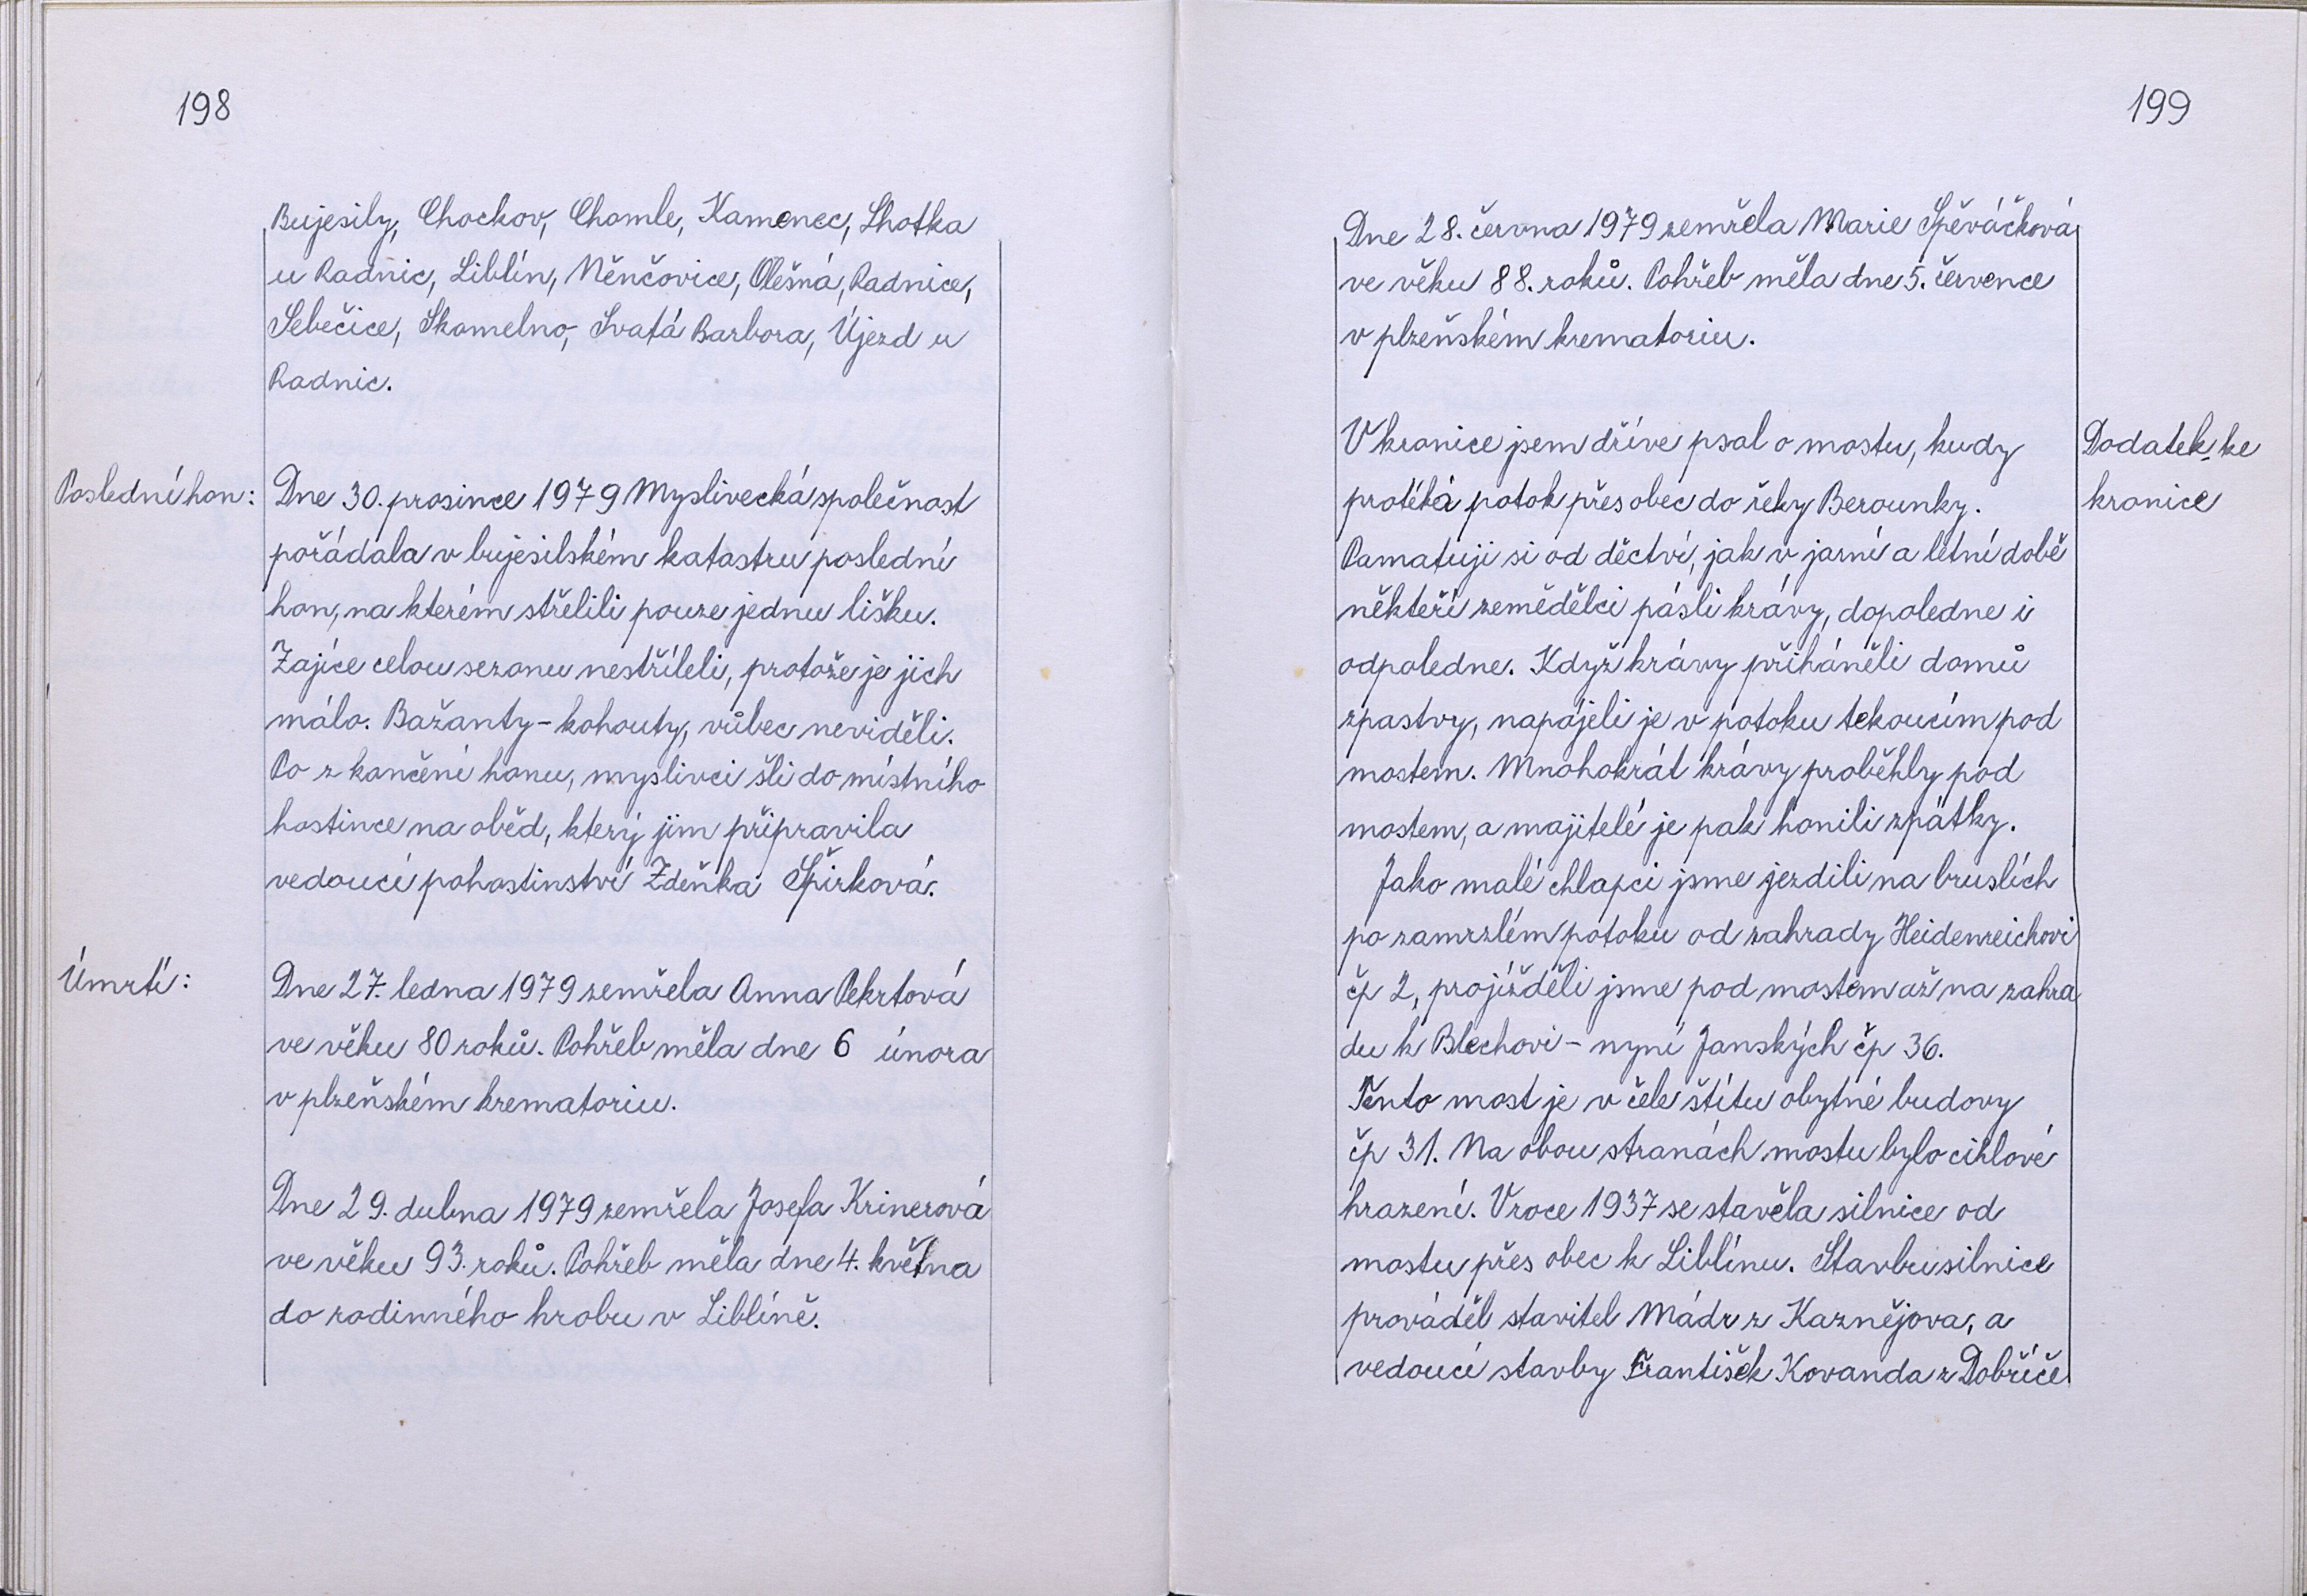 198
Bujesily, Chockov, Chomle, Kamenec, Lhotka
u Radnic, Liblín, Něnčovice, Olešná, Radnice,
Sebečice, Skomelno, Svatá Barbora, Újezd u
Radnic.
Poslední hon:
Dne 30. prosince 1979 Myslivecká společnost
pořádala v bujesilském katastru poslední
hon, na kterém střelili pouze jednu lišku.
Zajíce celou sezonu nestříleli, protože je jich
málo. Bažanty - kohouty, vůbec neviděli.
Po z končení honu, myslivci šli do místního
hostince na oběd, který jim připravila
vedoucí pohostinství Zdeňka Špirková.
Úmrtí:
Dne 27. ledna 1979 zemřela Anna Pekrtová
ve věku 80 roků. Pohřeb měla dne 6 února
v plzeňském krematoriu.
Dne 29. dubna 1979 zemřela Josefa Krinerová
ve věku 93. roků. Pohřeb měla dne 4. května
do rodinného hrobu v Liblíně.
199
Dne 28. června 1979 zemřela Marie Spěváčková
ve věku 88. roků. Pohřeb měla dne 5. července
v plzeňském krematoriu.
Dodatek ke
kronice
V kronice jsem dříve psal o mostu, kudy
protéká potok přes obec do řeky Berounky.
Pamatuji si od děctví, jak v jarní a letní době
někteří zemědělci pásli krávy, dopoledne i
odpoledne. Když krávy přiháněli domů
zpastvy, napájeli je v potoku tekoucím pod
mostem. Mnohokrát krávy proběhly pod
mostem, a majitelé je pak honili zpátky.
Jako malé chlapci jsme jezdili na bruslích
po zamrzlém potoku od zahrady Heidenreichovi
čp 2, projížděli jsme pod mostem až na zahra
du k Blechovi - nyní Janských čp 36.
Tento most je v čele štítu obytné budovy
čp 31. Na obou stranách mostu bylo cihlové
hrazení. V roce 1937 se stavěla silnice od
mostu přes obec k Liblínu. Stavbu silnice
prováděl stavitel Mádr z Kaznějova, a
vedoucí stavby František Kovanda z Dobříče